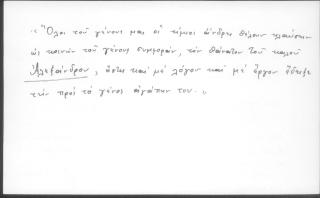 « Ὅλοι τοῦ γένους μας οἱ τίμιοι ἄνδρες θέλουν κλαύσειν
ὡς κοινὴν τοῦ γένους συμφοράν, τὸν θάνατον τοῦ καλοῦ
Ἀλεξάνδρου, ὅστις καὶ μὲ λόγον καὶ μὲ ἔργον ἔδειξε
τὴν πρὸς τὸ γένος ἀγάπην του. »